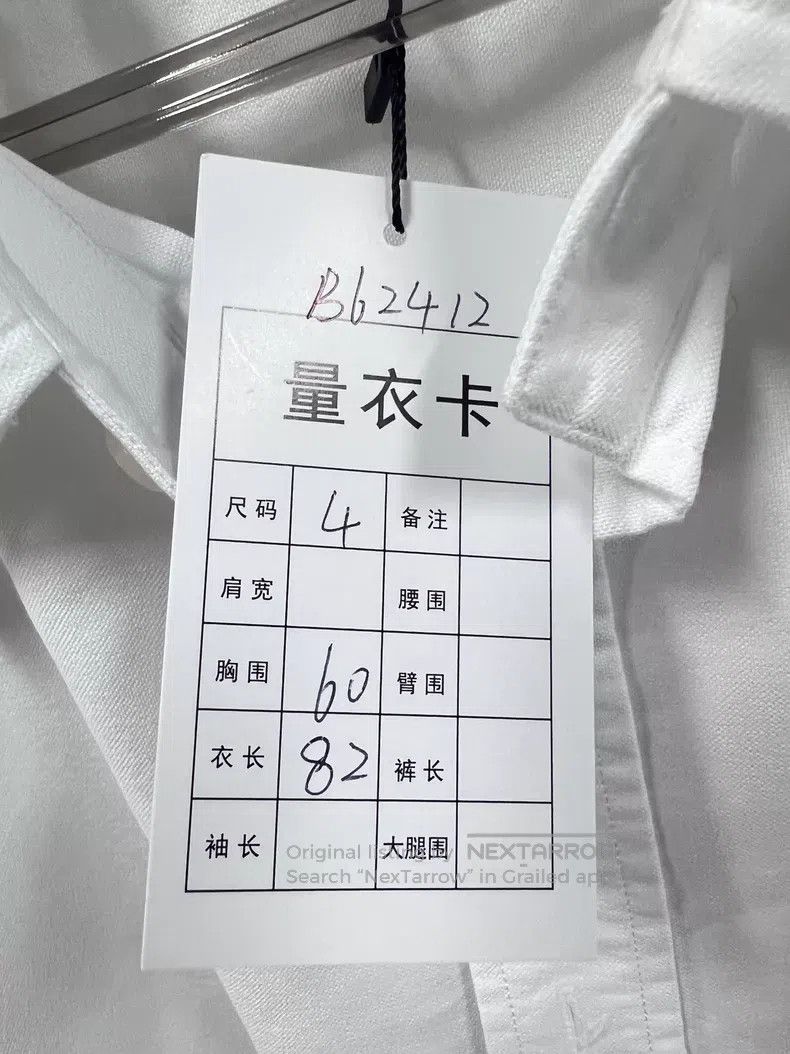 B62412
量衣卡
尺码 4 备注
肩宽 腰围
胸围 60 臂围
衣长 82 裤长
袖长 大腿围
Original listing by NEXTARROW
Search “NexTarrow” in Grailed app